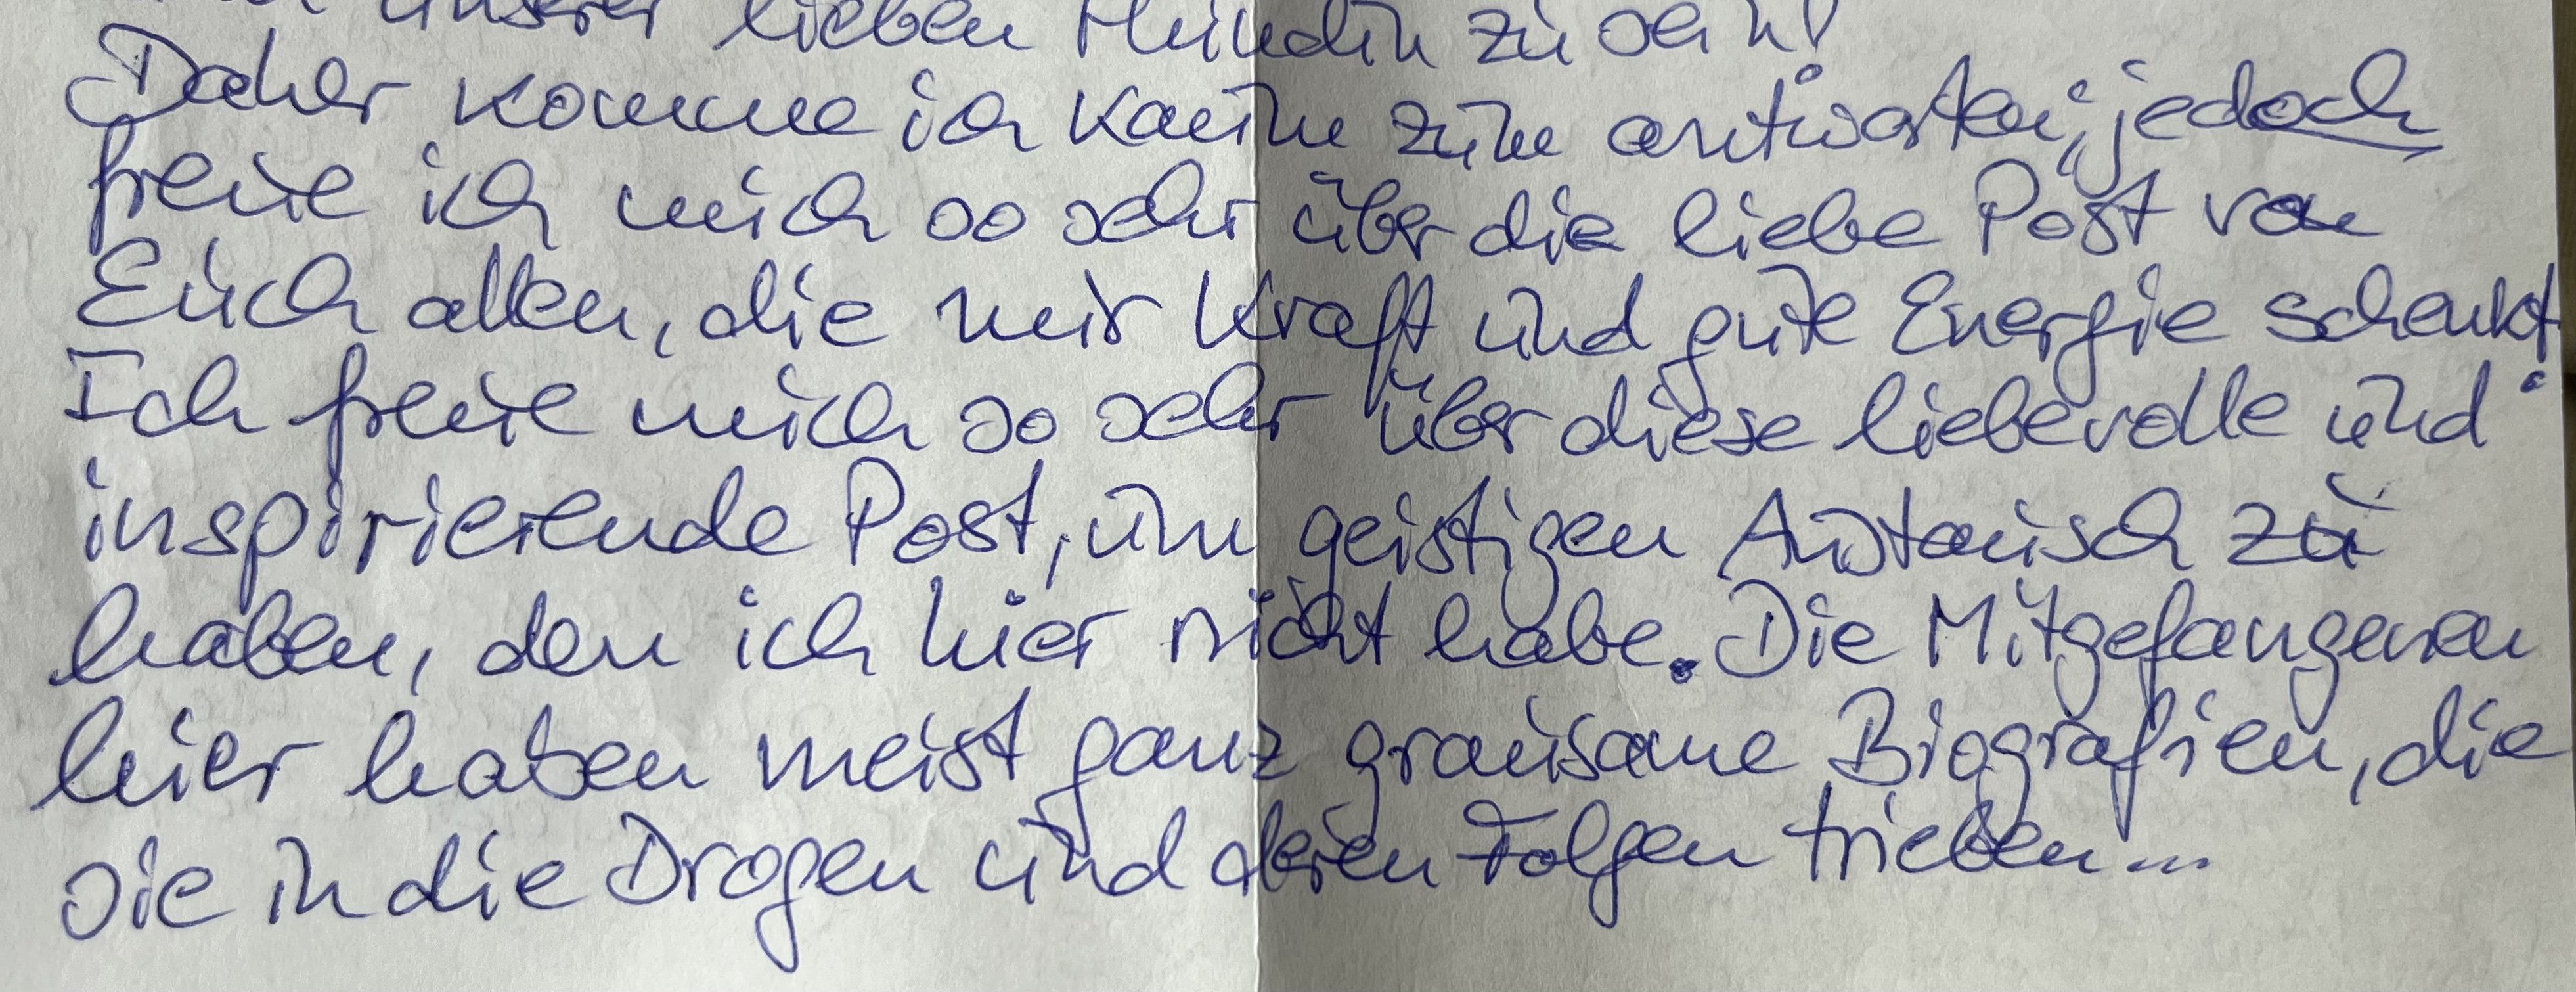 unserer lieben Hündin zu sein!
Daher komme ich kaum zum antworten, jedoch
freue ich mich so sehr über die liebe Post von
Euch allen, die mir Kraft und gute Energie schenkt.
Ich freue mich so sehr über diese liebevolle und
inspirierende Post, um geistigen Austausch zu
haben, den ich hier nicht habe. Die Mitgefangenen
hier haben meist ganz grausame Biografien, die
sie in die Drogen und deren Folgen trieben...